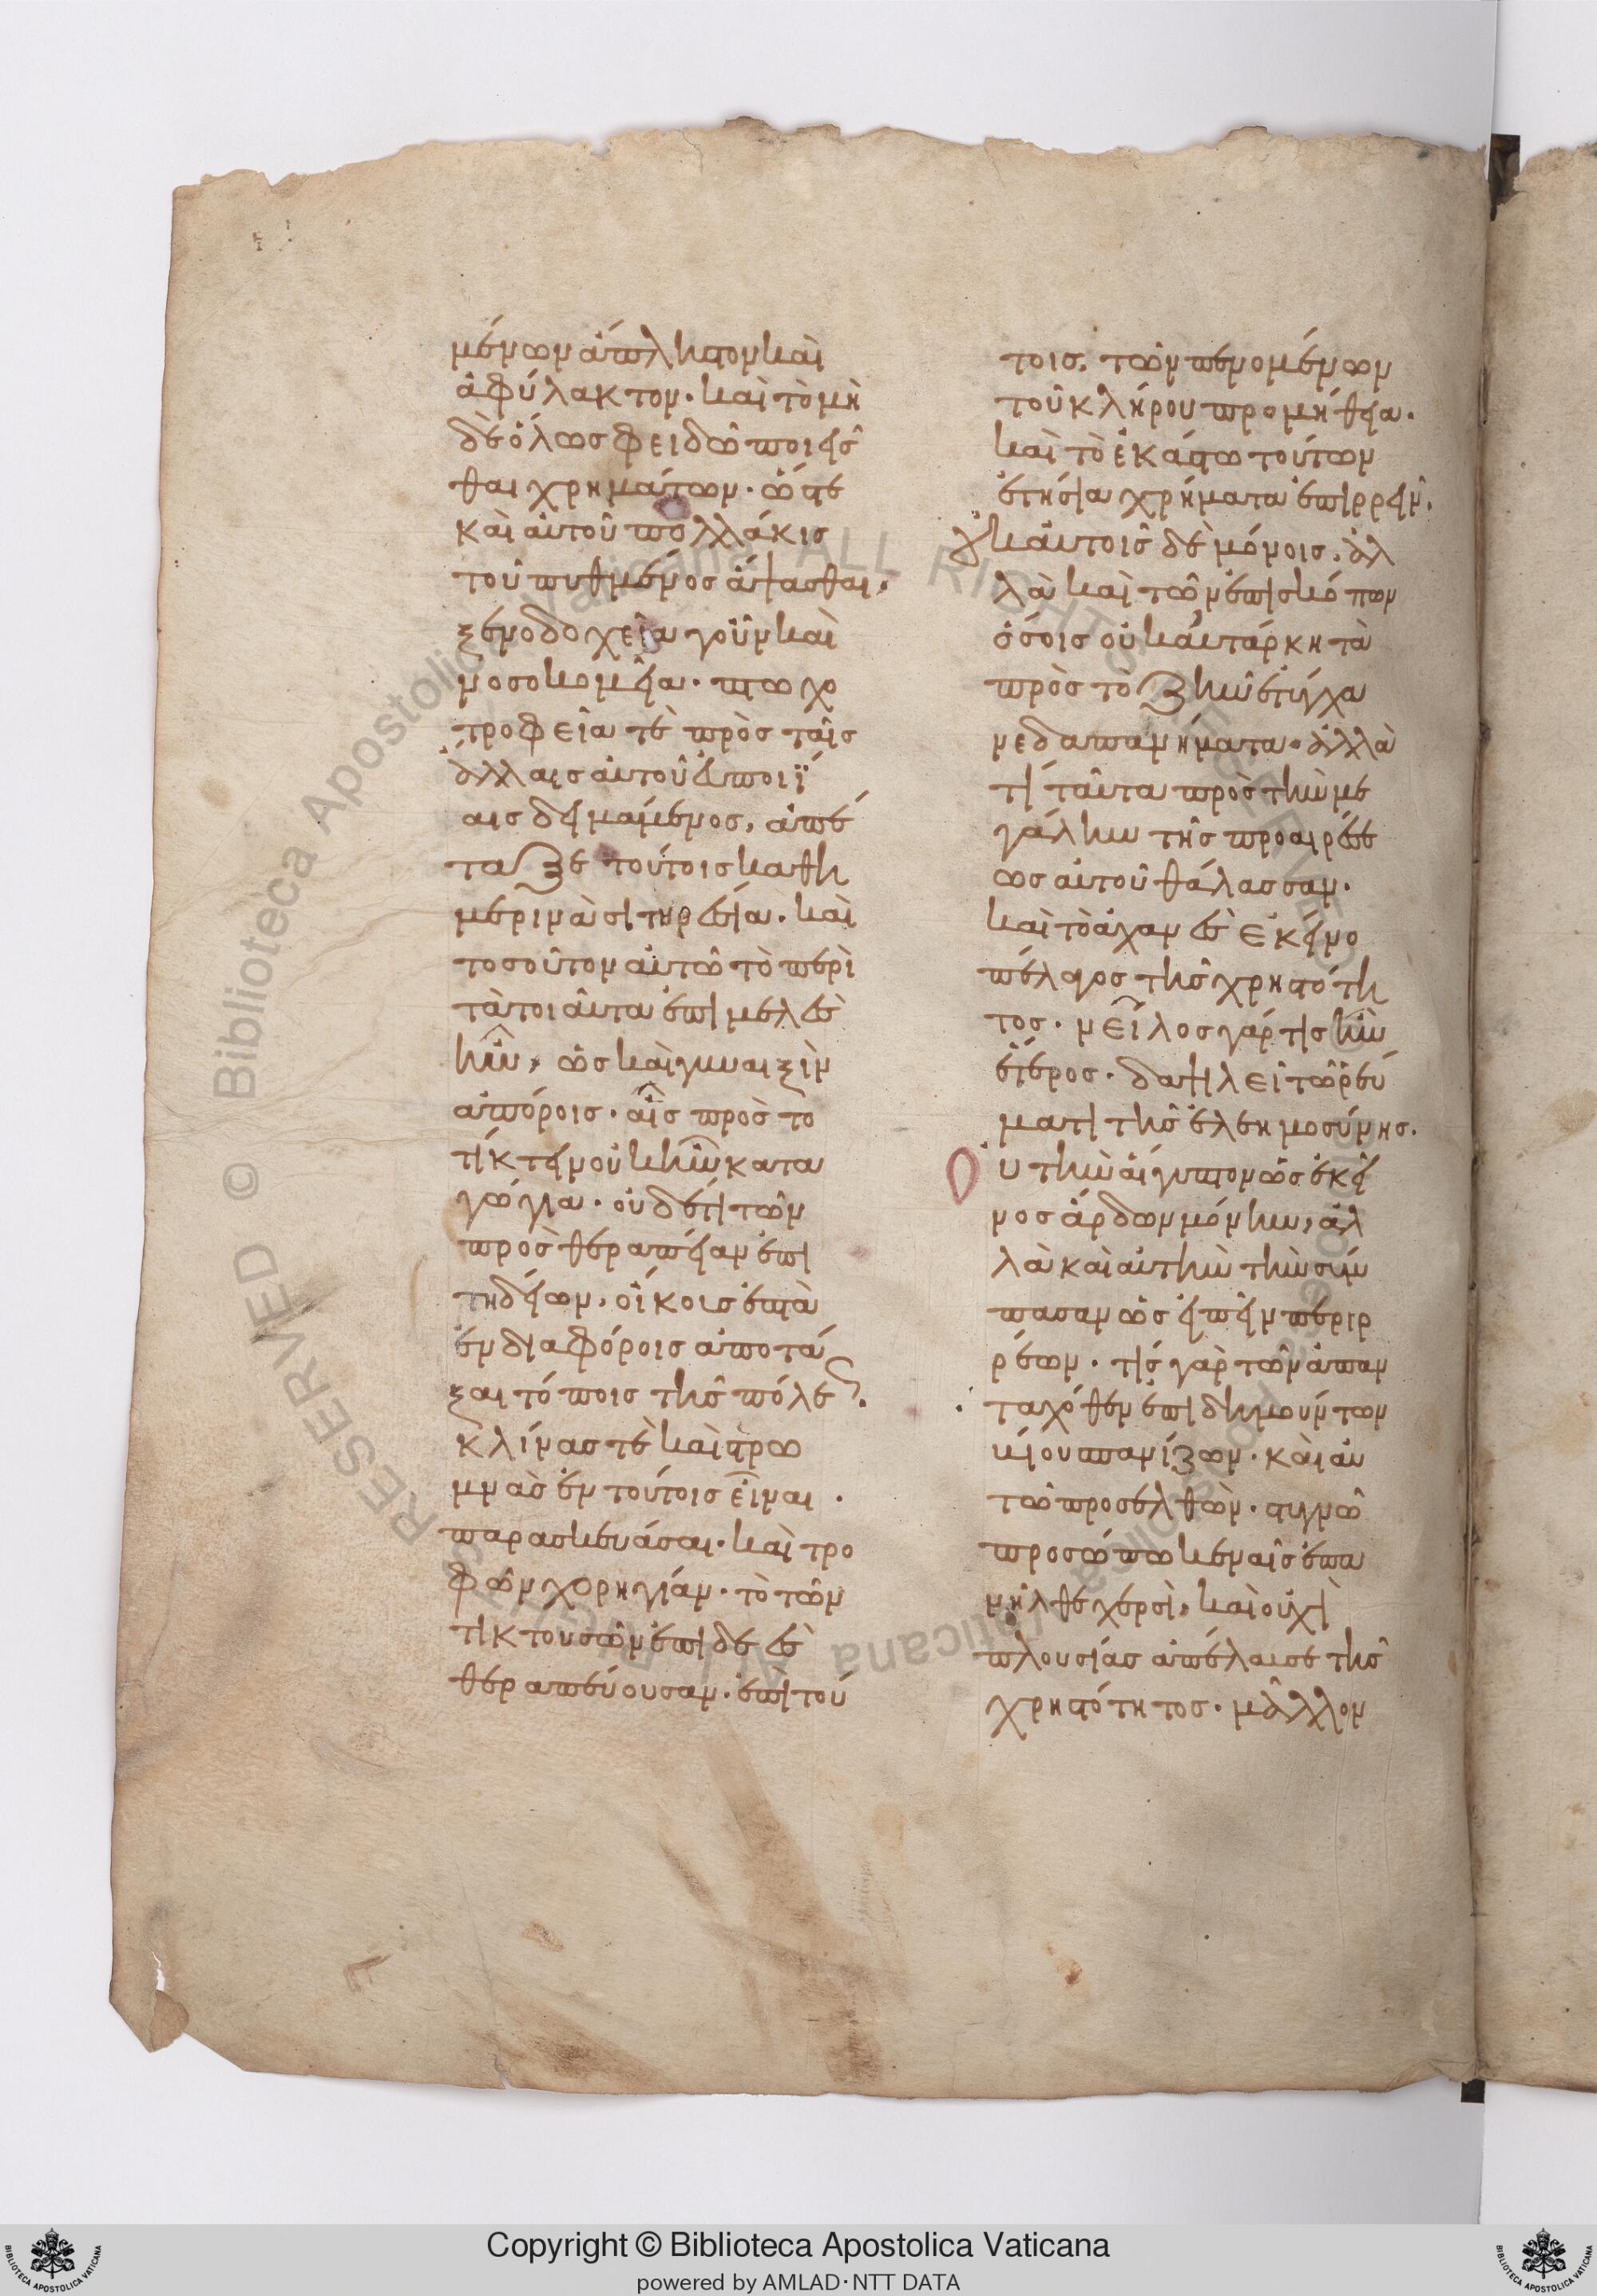 μένων ἄπληστον καὶ
ἀφύλακτον· καὶ τὸ μὴ
δὲ ὅλως φειδῶ ποιεῖσ
θαι χρημάτων· ὥστε
καὶ αὐτοῦ πολλάκις
τοῦ πυθμένος ἅψασθαι·
ξενοδοχεῖα γοῦν καὶ
νοσοκομεῖα· πτωχο
τροφεῖά τε πρὸς ταῖς
ἄλλαις αὐτοῦ εὐποιΐ
αις δειμάμενος, ἀπέ
ταξε τούτοις καθη
μερινὰ σιτηρέσια· καὶ
τοσοῦτον αὐτῶ τὸ περὶ
τὰ τοιαῦτα ἐπιμελὲς
ἦν, ὡς καὶ γυναιξὶν
ἀπόροις· αἷς πρὸς τὸ
τίκτειν οὐκ ἦν κατα
γώγια· οὐδέ τι τῶν
πρὸς θεραπείαν ἐπι
τηδείων, οἴκους ἑπτὰ
ἐν διαφόροις ἀποτά
ξαι τόποις τῆς πόλεως·
κλίνας τὲ καὶ στρω
μνὰς ἐν τούτοις εἶναι ·
παρασκευάσαι· καὶ τρο
φῶν χορηγίαν· τὸ τῶν
τικτουσῶν ἐπιδεὲς
θεραπεύουσαν· ἐπὶ τού
τοις, τῶν πενομένων
τοῦ κλήρου προμήθεια·
καὶ τὸ ἑκάστω τούτων
ἐτήσια χρήματα ἐπιρρεῖν·
οὐκ αὐτοῖς δὲ μόνοις, ἀλ
λὰ καὶ τῶν ἐπισκόπων
ὅσοις οὐκ αὐτάρκη τὰ
πρὸς τὸ ζῆν ἐτύγχα
νε δαπανήματα· ἀλλὰ
τί ταῦτα πρὸς τὴν με
γάλην τῆς προαιρέσε
ως αὐτοῦ θάλασσαν·
καὶ τὸ ἀχανὲς ἐκεῖνο
πέλαγος τῆς χρηστότη
τος· νεῖλος γάρ τις ἦν
ἕτερος· δαψιλεῖ τῶ ῥεύ
ματι τῆς ἐλεημοσύνης·
Οὐ τὴν αἴγυπτον ὡς ἐκεῖ
νος ἄρδων μόνην, ἀλ
λὰ καὶ αὐτὴν τὴν σύμ
πασαν ὡς εἰπεῖν περιρ
ρέων· τίς γὰρ τῶν ἁπαν
ταχόθεν ἐπιδημούντων
κἰ οὐ σπανίζων· καὶ αὐ
τῶ προσελθὼν· στυγνῶ
προσώπω κεναῖς ἐπα
νῆλθε χερσὶ, καὶ οὐχὶ
πλουσίας ἀπέλαυσε τῆς
χρηστότητος· μᾶλλον
Copyright © Biblioteca Apostolica Vaticana
powered by AMLAD·NTT DATA